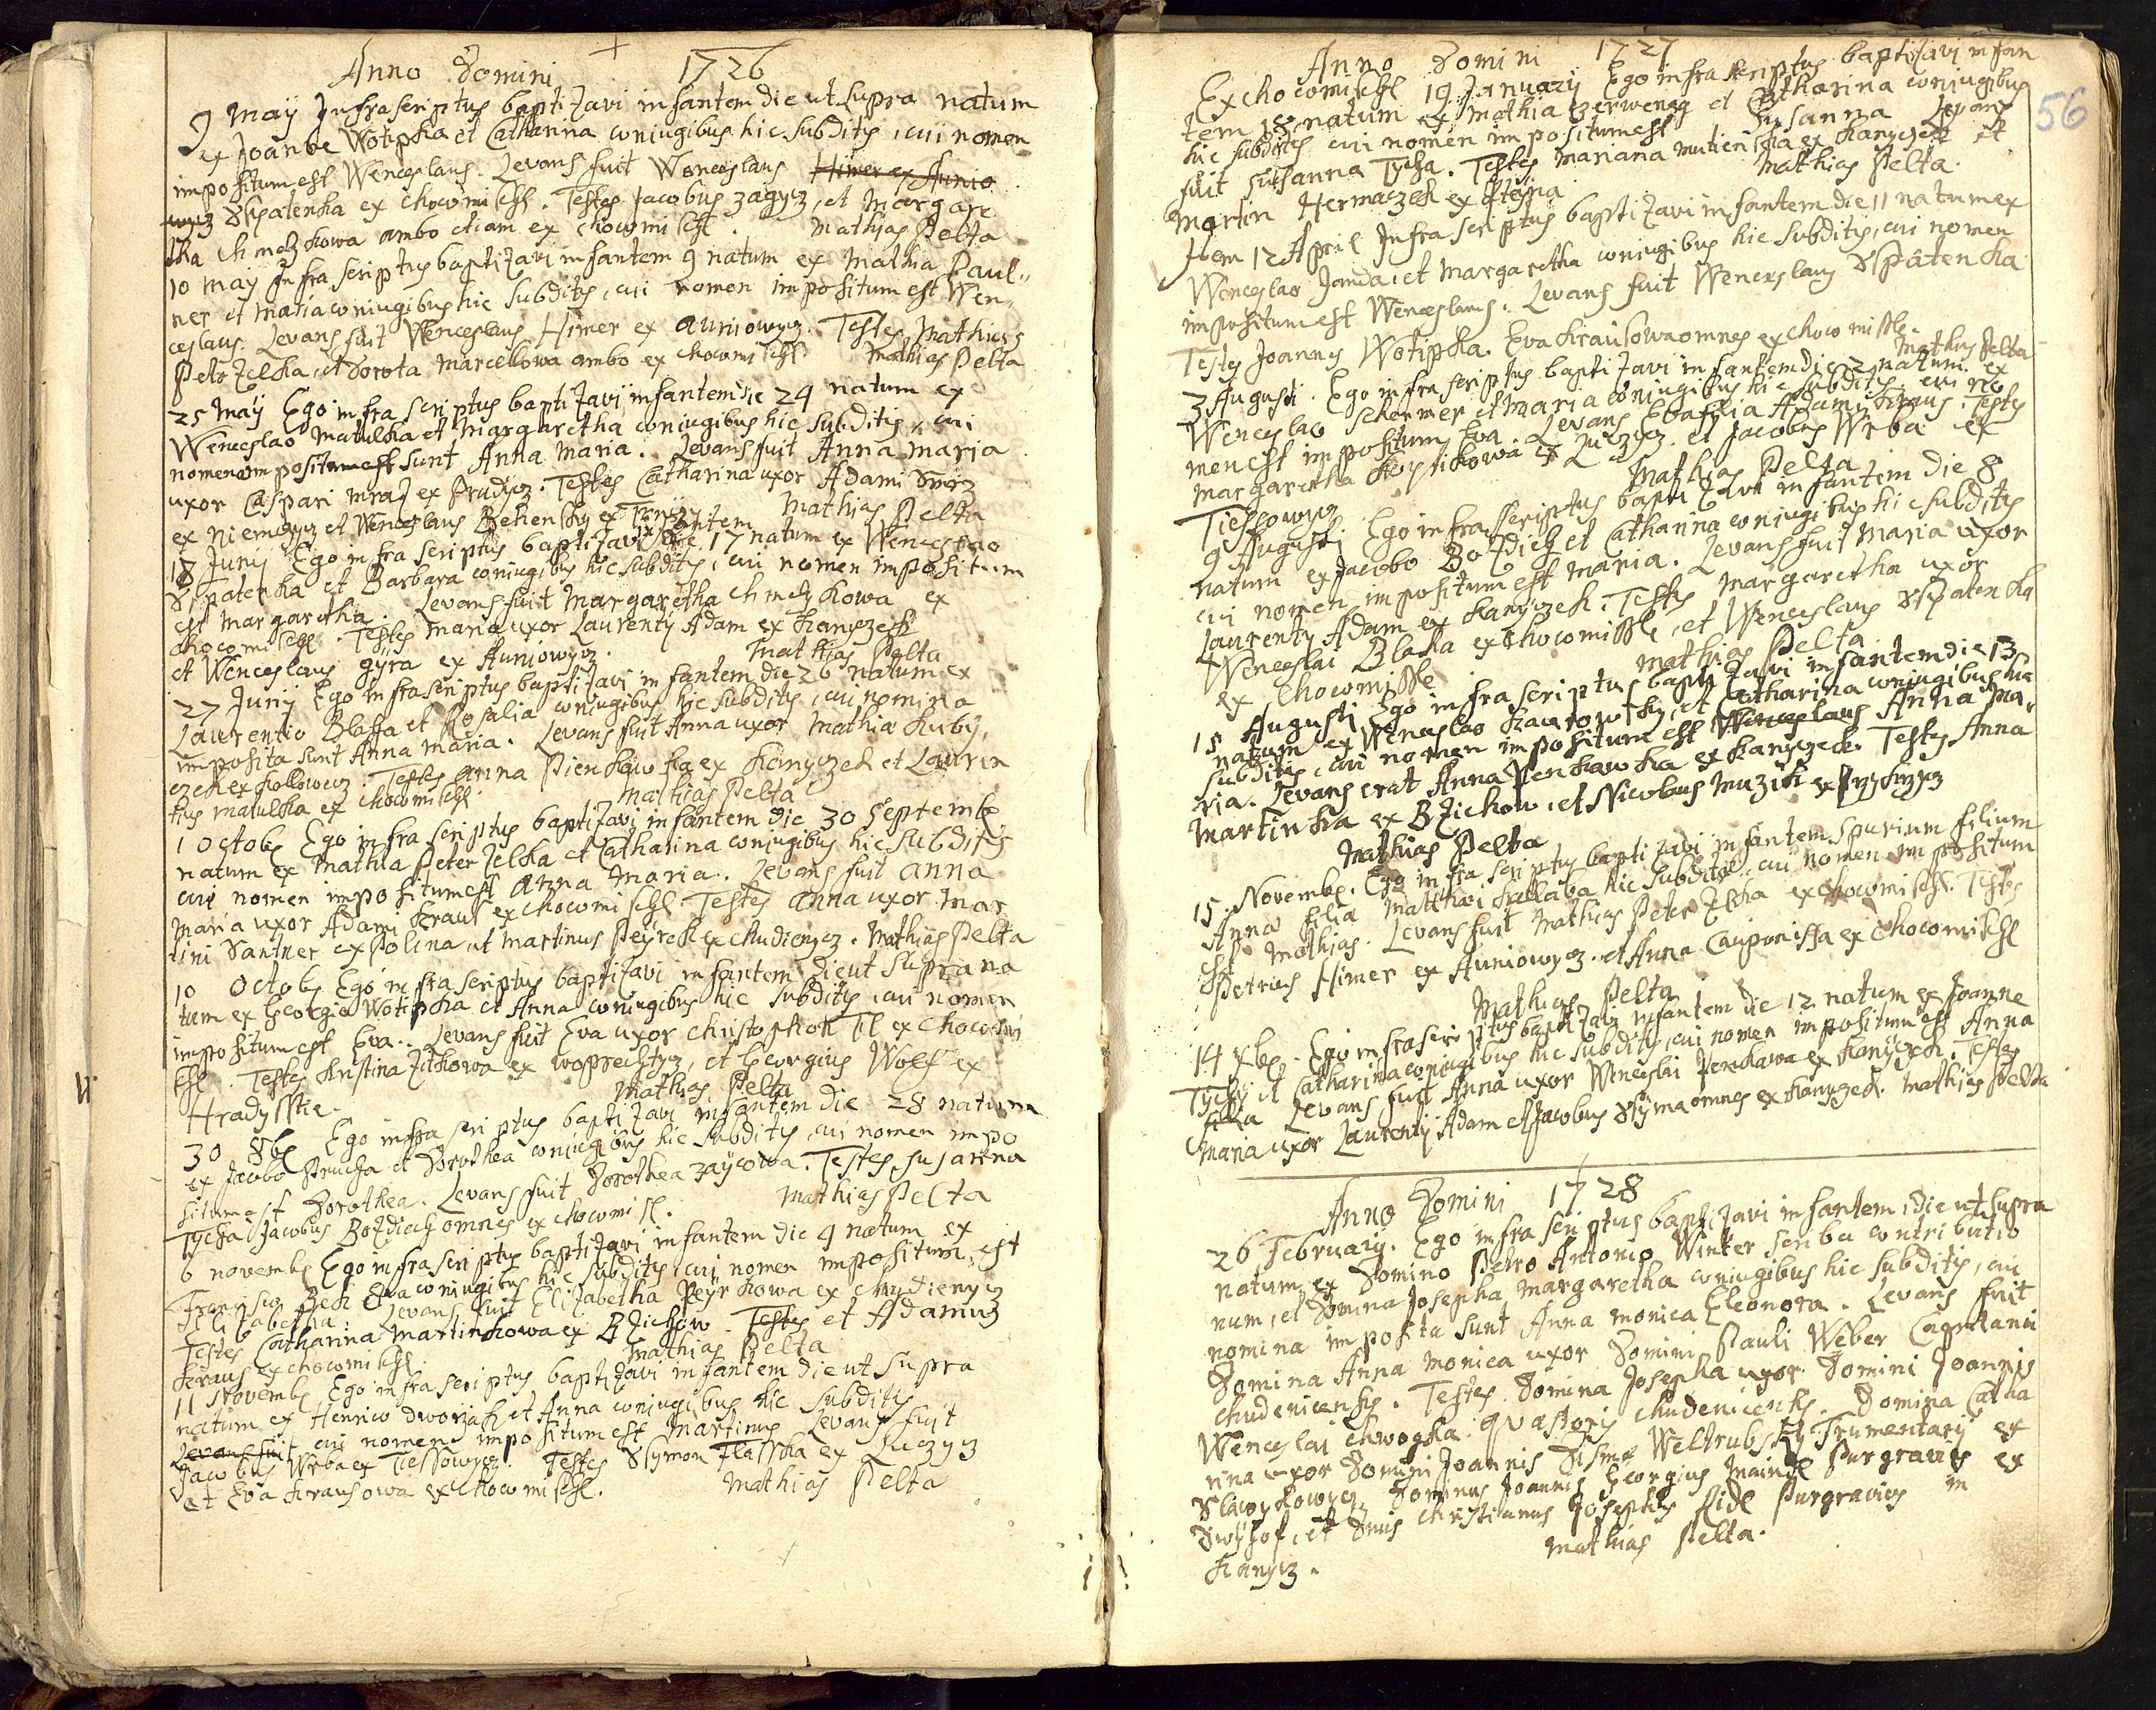 Anno Domini 1726
9 May Infrascriptus baptizavi infantem die ut supra natum
ex Joanne Wotipka et Catharina coniugibus hic subditis, cui nomen
impositum est Wenceslaus. Levans fuit Wenceslaus Himer ex Aunio
wycz Sspatenka ex Chocomischl. Testes Jacobus Zagycz, et Margare
tha Chmelzkowa ambo etiam ex Chocomischl. Mathias Pelta
10 May Infrascriptus baptizavi infantem 9 natum ex Mathia Paul„
ner et Maria coniugibus hic subditis, cui nomen impositum est Wen„
ceslaus. Levans fuit Wenceslaus Himer ex Auniowycz. Testes Mathias
Peterzelka, et Dorota Marcelkowa ambo ex Chocomischl Mathias Pelta
25 May Ego infrascriptus baptizavi infantem die 24 natum ex
Wenceslao Matulka et Margaretha coniugibus hic subditis, cui
nomen impositum est sunt Anna Maria. Levans fuit Anna Maria
uxor Caspari Mraz ex Prudycz. Testes Catharina uxor Adami
ex Niemczycz et Wenceslaus Behensky ex Mathias Pelta
18 Juny Ego infrascriptus baptizavi infantem die 17 natum ex Wenceslao
Sspatenka et Barbara coniugibus hic subditis, cui nomen impositum
est Margaretha. Levans fuit Margaretha Chmelzkowa ex
Chocomischl. Testes Maria uxor Laurenty Adam ex Kanyczek
et Wenceslaus Gyra ex Auniowycz. Mathias Pelta
27 Juny Ego infrascriptus baptizavi infantem die 26 natum ex
Laurentio Blassa et Rosalia coniugibus hic subditis, cui nomina
imposita sunt Anna Maria. Levans fuit Anna uxor Mathia Kuby,
czek ex Kollowecz. Testes Anna Pienkawka ex Kanyczek et Lauren
tius Matulka ex Chocomischl. Mathias Pelta
1 Octob Ego infrascriptus baptizavi infantem die 30 Septemb
natum ex Mathia Peterzelka et Catharina coniugibus hic subditis
cui nomen impositum est Anna Maria. Levans fuit Anna
Maria uxor Adami Kraus ex Chocomischl. Testes Anna uxor Mar
tini Santner ex Polina et Martinus Peyrek ex Chudienycz. Mathias Pelta
10 Octob Ego infrascriptus baptizavi infantem die ut supra na
tum ex Georgio Wotipka et Anna coniugibus hic subditis, cui nomen
impositum est Eva. Levans fuit Eva uxor Christophori Til ex Chocomi
schl. Testes Kristina Zitkowa ex woprechtycz, et Georgius Wolf ex
Hradysstie. Mathias Pelta
30 8b Ego infrascriptus baptizavi infantem die 28 natum
ex Jacobo Prucha et Dorothea coniugibus hic subditis, cui nomen impo
situm est Dorothea. Levans fuit Dorothea Zaycowa. Testes Susanna
Tycha Jacobus Bozdiech omnes ex Chocomisl. Mathias Pelta
6 Novemb Ego infrascriptus baptizavi infantem die 4 natum ex
Francisco Bech Eva coniugibus hic subditis cui nomen impositum est
Elizabetha. Levans fuit Elizabetha Peyrkowa ex Chudienycz
Testes Catharina Martinkowa ex Bzichow Testes et Adamus
Kraus ex Chocomischl. Mathias Pelta
11 Novemb Ego infrascriptus baptizavi infantem die ut supra
natum ex Henrico Dworzak et Anna coniugibus hic subditis
Levans fuit cui nomen impositum est Martinus Levans fuit
Jacobus Wrba ex Tiessowycz. Testes Ssymon Flasska ex Luczycz
et Eva Krausowa ex Chocomischl. Mathias Pelta
56
Anno Domini 1727
Ex Chocomischl 19 January Ego infrascriptus baptizavi infan
tem 18 natum ex Mathia Czerweny et Catharina coniugibus
hic subditis cui nomen impositum est Susanna Levans
fuit Susanna Tycha. Testes Mariana ex Kanyczek et
Martin Hermaczek ex Mathias Pelta.
Item 12 April Infrascriptus baptizavi infantem die 11 natum ex
Wenceslao Janda, et Margaretha coniugibus hic subditis, cui nomen
impositum est Wenceslaus. Levans fuit Wenceslaus Sspatenka
Testes Joannes Wotipka. Eva Krausowa omnes ex Chocomissle.
Mathias Pelta
3 Augusti. Ego infrascriptus baptizavi infantem die 2 natum ex
Wenceslao Schermer et Maria coniugibus hic subditis, cui no
men est impositum Eva. Levans Eva filia Adami Kraus. Testes
Margaretha ex Luczycz. et Jacobus Wrba ex
Tiessowycz Mathias Pelta
9 Augusti Ego infrascriptus baptizavi infantem die 8
natum ex Jacobo Bozdiech et Catharina coniugibus hic subditis
cui nomen impositum est Maria. Levans fuit Maria uxor
Laurenty Adam ex Kanyczek. Testes Margaretha uxor
Wenceslai Blaha ex Chocomissle, et Wenceslaus Sspatenka
ex Chocomissle Mathias Pelta
15 Augusti Ego infrascriptus baptizavi infantem die 13
natum ex Wenceslao Kaurowsky, et Catharina coniugibus hic
subditis, cui nomen impositum est Wenceslaus Anna Ma,
ria. Levans erat Anna Penkawka ex Kanyczek. Testes Anna
Martinka ex Bzichow, et Nicolaus Muzik ex
Mathias Pelta
15 Novemb. Ego infrascriptus baptizavi infantem spurium filium
Anna filia Matthaei Kallaba hic subditis, cui nomen impositum
est Mathias. Levans fuit Mathias Peterzelka ex Chocomischl. Testes
Petrus Himer ex Auniowycz. et Anna Cauponissa ex Chocomischl
Mathias Pelta
14 Xb. Ego infrascriptus baptizavi infantem die 12 natum ex Joanne
Tychy et Catharina coniugibus hic subditis, cui nomen impositum est Anna
filia Levans fuit Anna uxor Wenceslai Penkawa ex Kanyczek. Testes
Maria uxor Laurenty Adam et Jacobus Ssyma omnes ex Kanyczek. Mathias Pelta
Anno Domini 1728
26 February. Ego infrascriptus baptizavi infantem, die ut supra
natum ex Domino Petro Antonio Winter scriba contributio
num, et Domina Josepha Margaretha coniugibus hic subditis, cui
nomina imposita sunt Anna Monica Eleonora. Levans fuit
Domina Anna Monica uxor Domini Pauli Weber Capitanei
Chudenicensis. Testes Domina Josepha uxor Domini Joannis
Wenceslai Chwogka quastoris Chudenicensis. Domina Catha
rina uxor Domini Joannis Disma Weltrubsky Frumentary ex
Slawykowycz Dominus Joannes Georgius Maindl Purgravius ex
Dwyhof, et Dnus Christianus Josephus Ridl Purgravius in
Kanycz. Mathias Pelta.